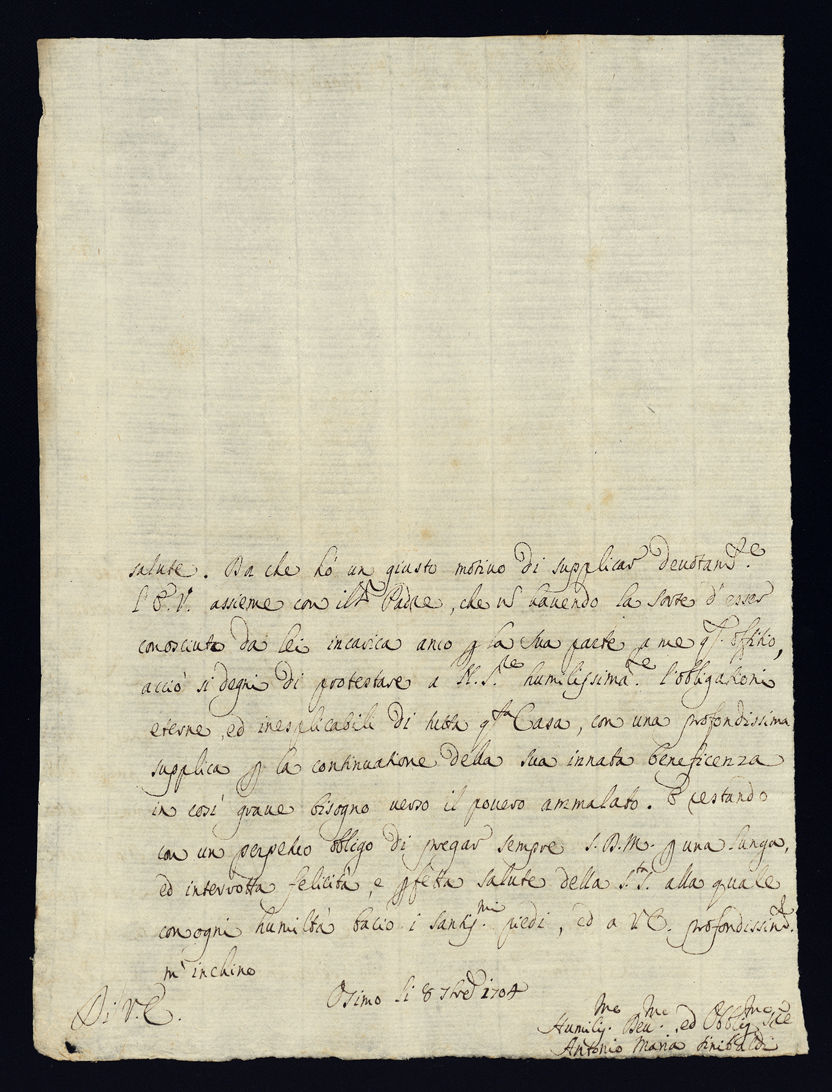 salute. Da che hò un giusto motivo di supplicar devotam.te
l'E.V. assieme con il Padre, che nō havendo la sorte d'esser
conosciuto da lei incarica anco p la sua parte a me qsto offitio,
acciò si degni di protestare a N. S.re humilissima.te l'obligationi
eterne, ed inesplicabili di tutta qsta Casa, con una profondissima
supplica p la continuatione della sua innata beneficenza
in così grave bisogno verso il povero ammalato. E restando
con un perpetuo obbligo di pregar sempre S. D. M. p una lunga,
ed interrotta felicità, e pfetta salute della S.tà S. alla quale
con ogni humiltà bacio i santiss.mi piedi, ed a V.E. profondissim.te
m'inchino
Osimo li 8 7bre 1704
Di V.E.
Humilis.mo Dev.mo ed Obblig.mo S.re
Antonio Maria Sinibaldi